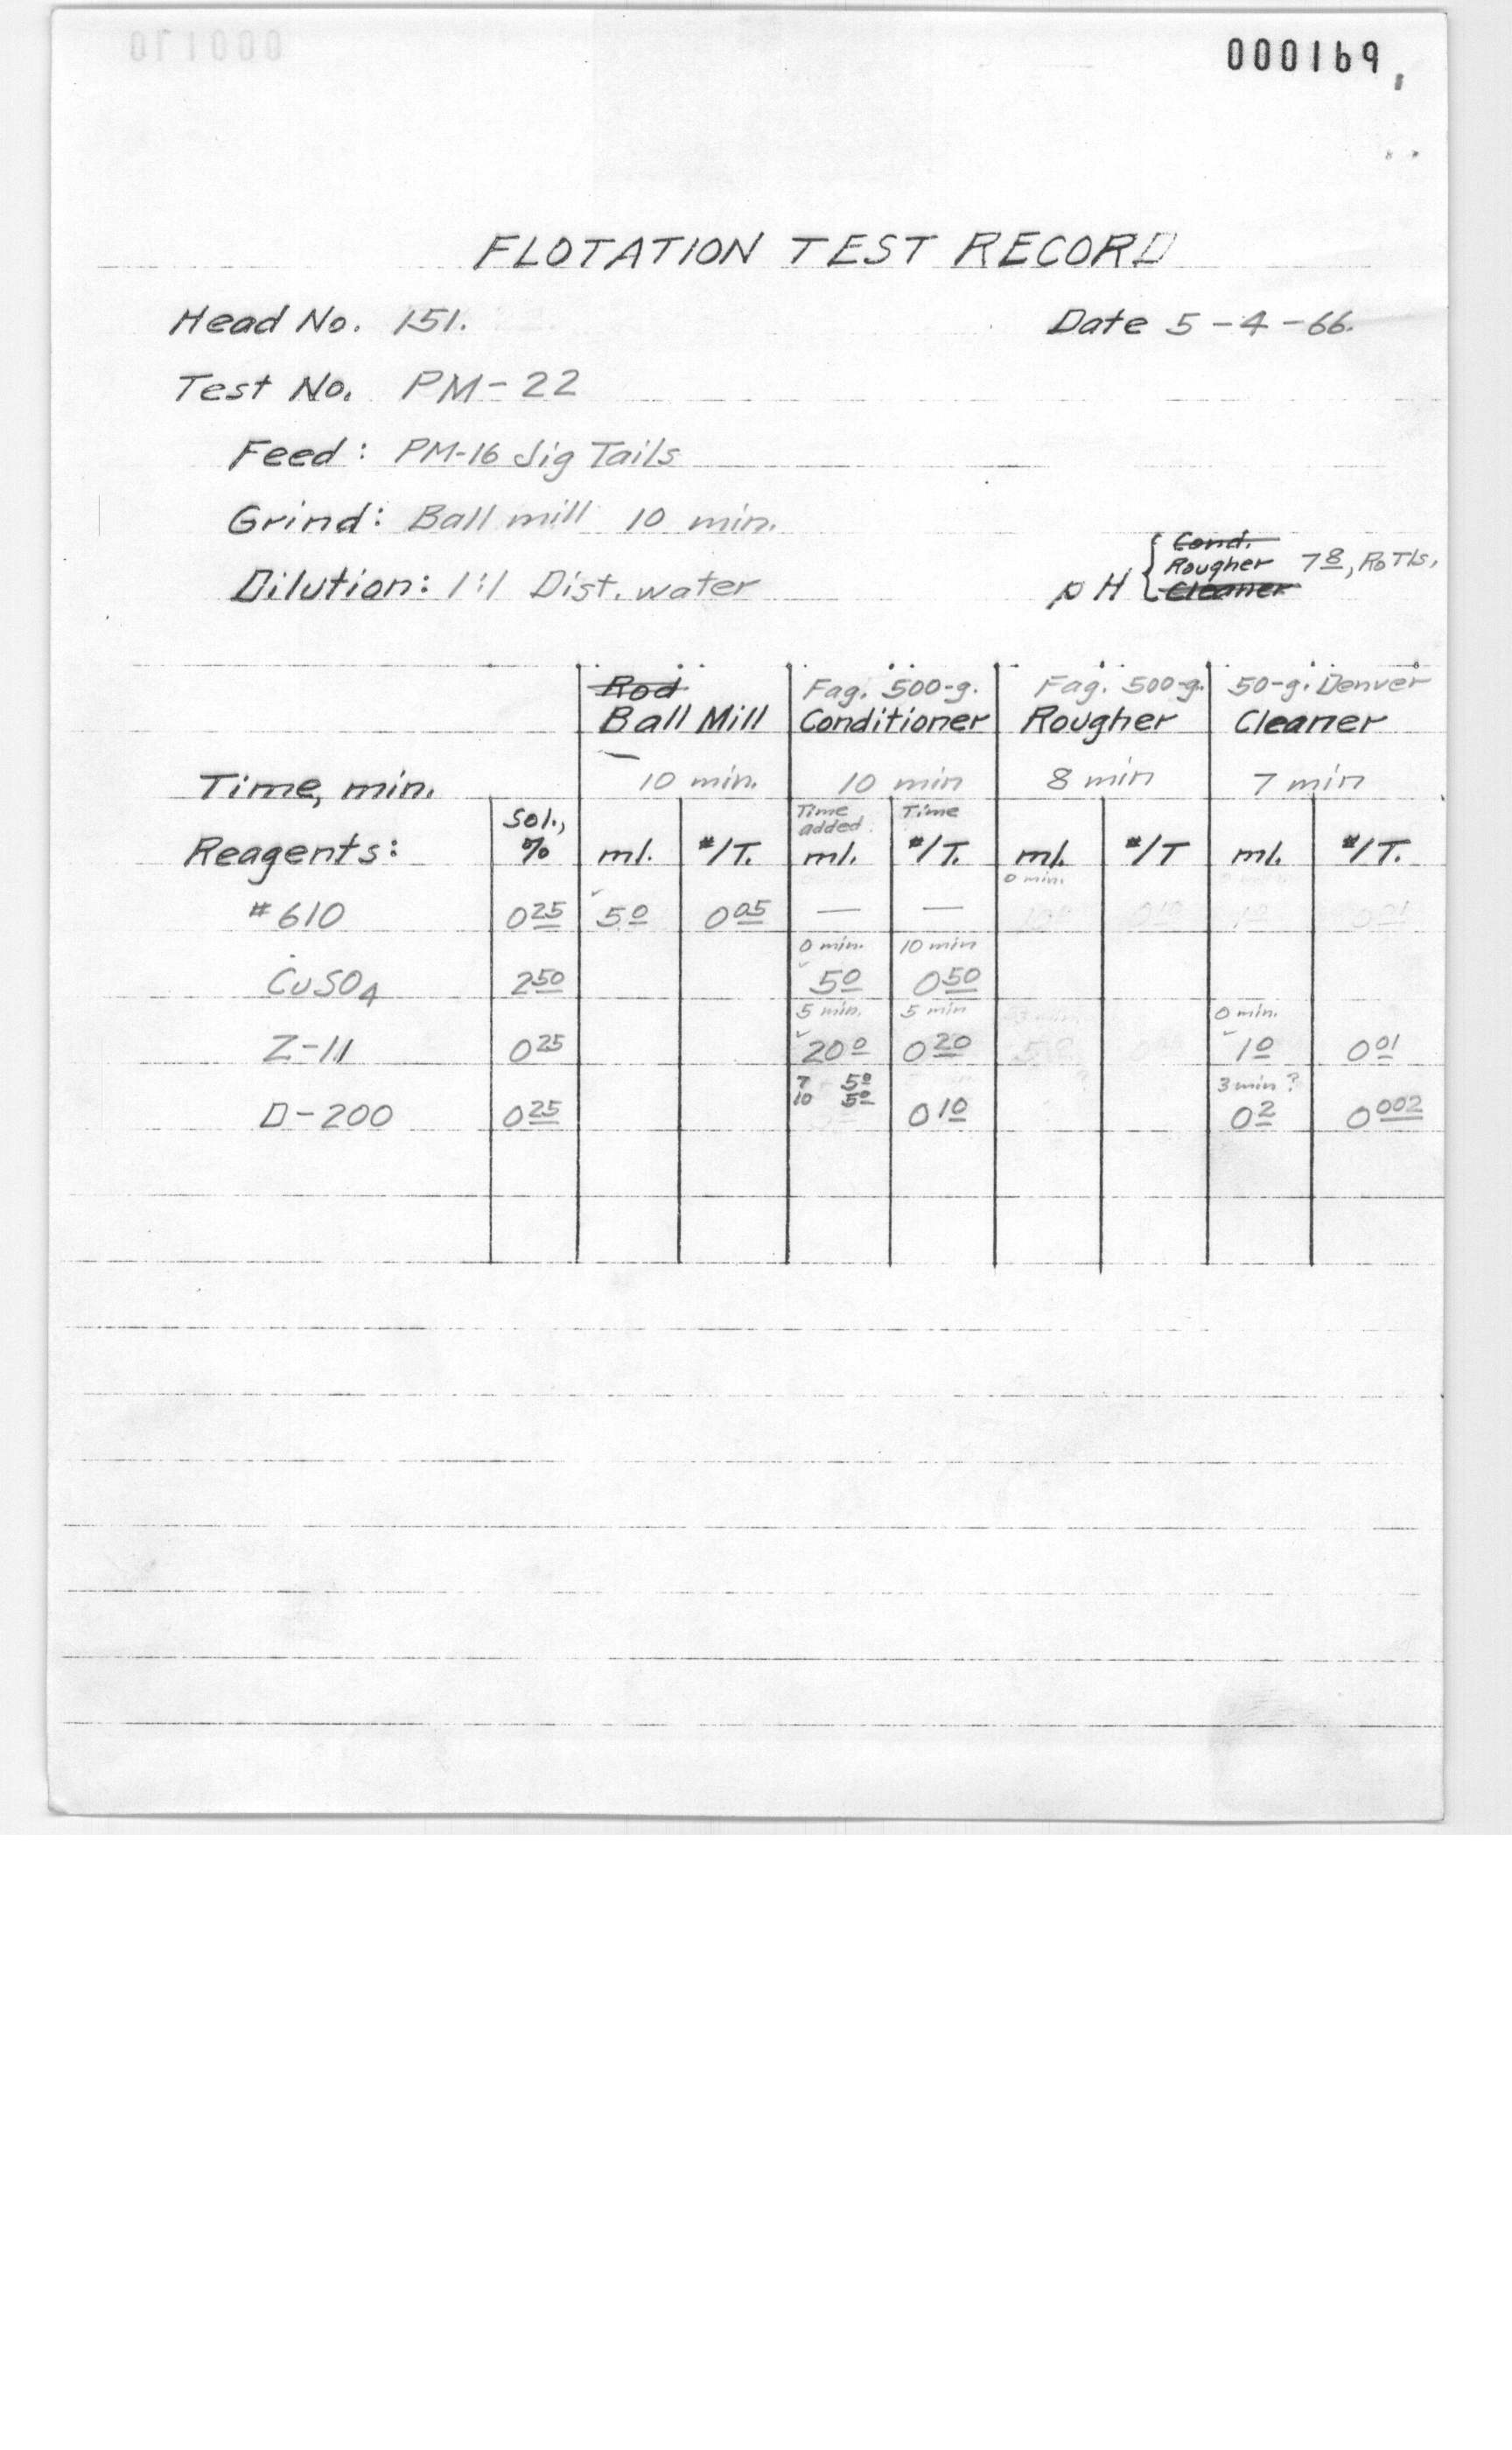 000169
FLOTATION TEST RECORD
Head No. 151. Date 5-4-66.
Test No. PM-22
Feed: PM-16 Jig Tails
Grind: Ball mill 10 min.
Dilution: 1:1 Dist. water pH { Cond. Rougher Cleaner 7 8, Ro Tls.
Rod Fag. 500-g. Fag. 500-g. 50-g. Denver
Ball Mill Conditioner Rougher Cleaner
Time, min. 10 min. 10 min 8 min 7 min
Sol., Time added Time
Reagents: % ml. #/T. ml. #/T. ml. #/T ml. #/T.
0 min.
#610 0 25 5 0 0 05 — —
0 min. 10 min
CuSO4 2 50 5 0 0 50
5 min. 5 min 0 min.
Z-11 0 25 20 0 0 20 1 0 0 01
7 5 0 3 min?
10 5 0
D-200 0 25 0 10 0 2 0 002